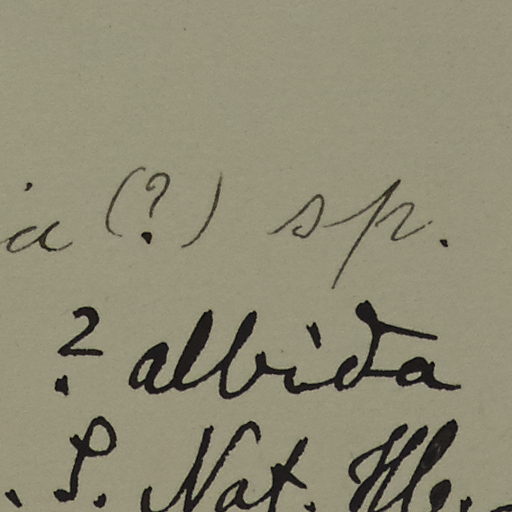 ia (?) sp.
? albida
. S. Nat. Hb.